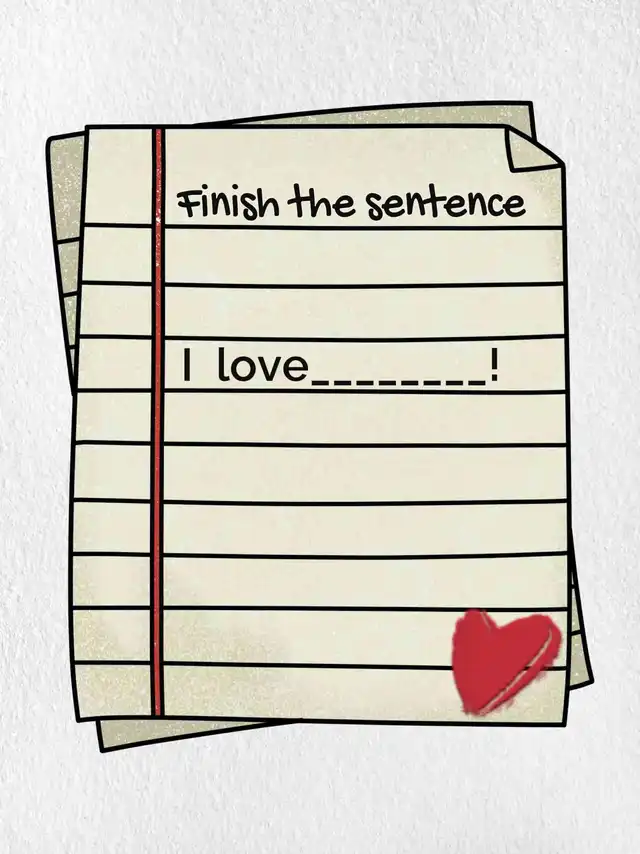 Finish the sentence
I love________!